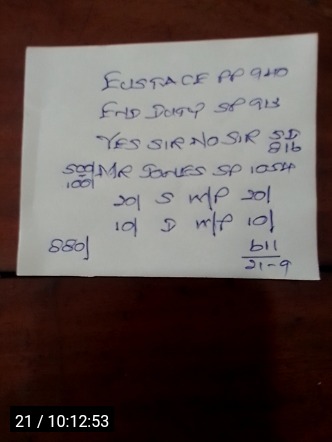 EUSTACE PP 940
END DUTY SP 913
YES SIR NO SIR SD 816
500/ 100/ MR JONES SP 1054
20/ S M/P 20/
10/ D M/P 10/
880/ 611
21-9
21 / 10:12:53